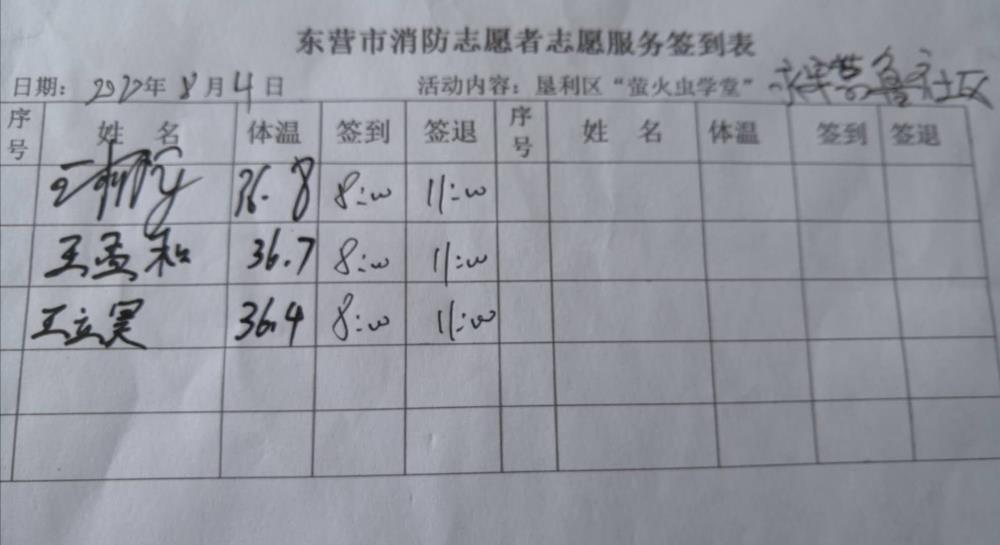 东营市消防志愿者志愿服务签到表
日期: 2022年 8月4日 活动内容: 垦利区“萤火虫学堂” 社区
序号 姓 名 体温 签到 签退 序号 姓 名 体温 签到 签退
王 36.8 8:00 11:00
王孟和 36.7 8:00 11:00
王立 36.4 8:00 11:00